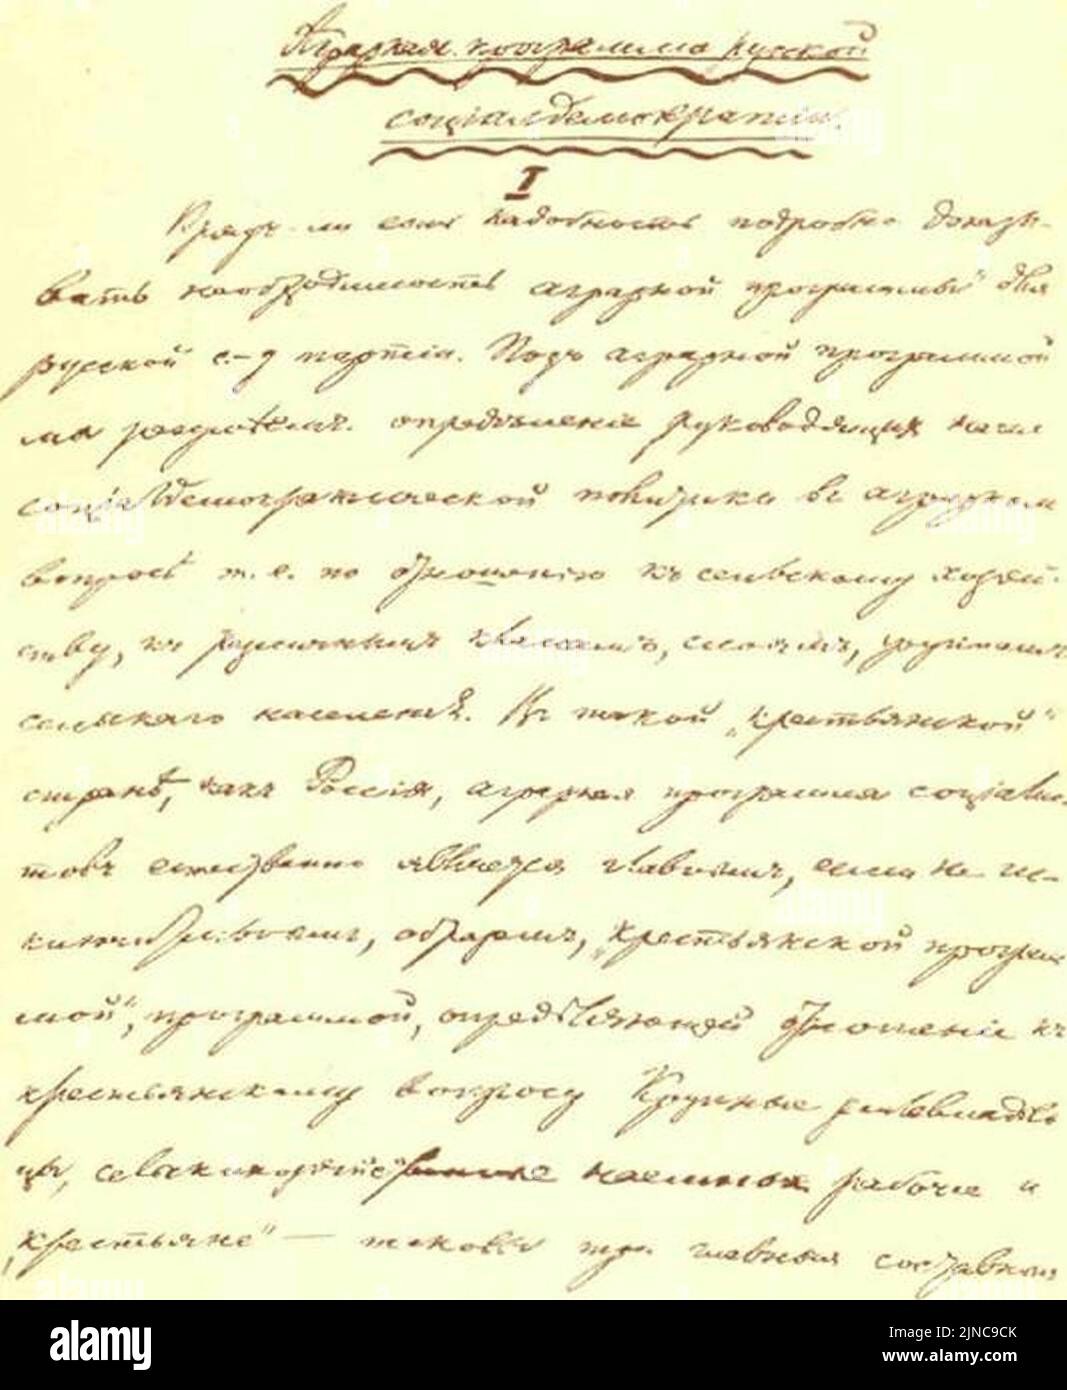 Аграрная программа русской
соціалдемократіи.
I
Врядъ-ли есть надобность подробно доказы-
вать необходимость аграрной программы для
русской с.-д партіи. Подъ аграрной программой
мы разумѣемъ опредѣленіе руководящихъ началъ
соціалдемократической политики въ аграрномъ
вопросѣ т. е. по отношенію къ сельскому хозяй-
ству, къ различнымъ классамъ, слоямъ, группамъ
сельскаго населенія. Въ такой „крестьянской"
странѣ, какъ Россія, аграрная программа соціалис-
товъ естественно является главнымъ, если не ис-
ключительнымъ, образомъ, „крестьянской програм-
мой", программой, опредѣляющей отношеніе къ
крестьянскому вопросу Крупные землевладѣль-
цы, сельскохозяйственные наемные рабочіе и
„крестьяне" — таковы три главныя составныя
alamy
Image ID: 2JNC9CK
www.alamy.com